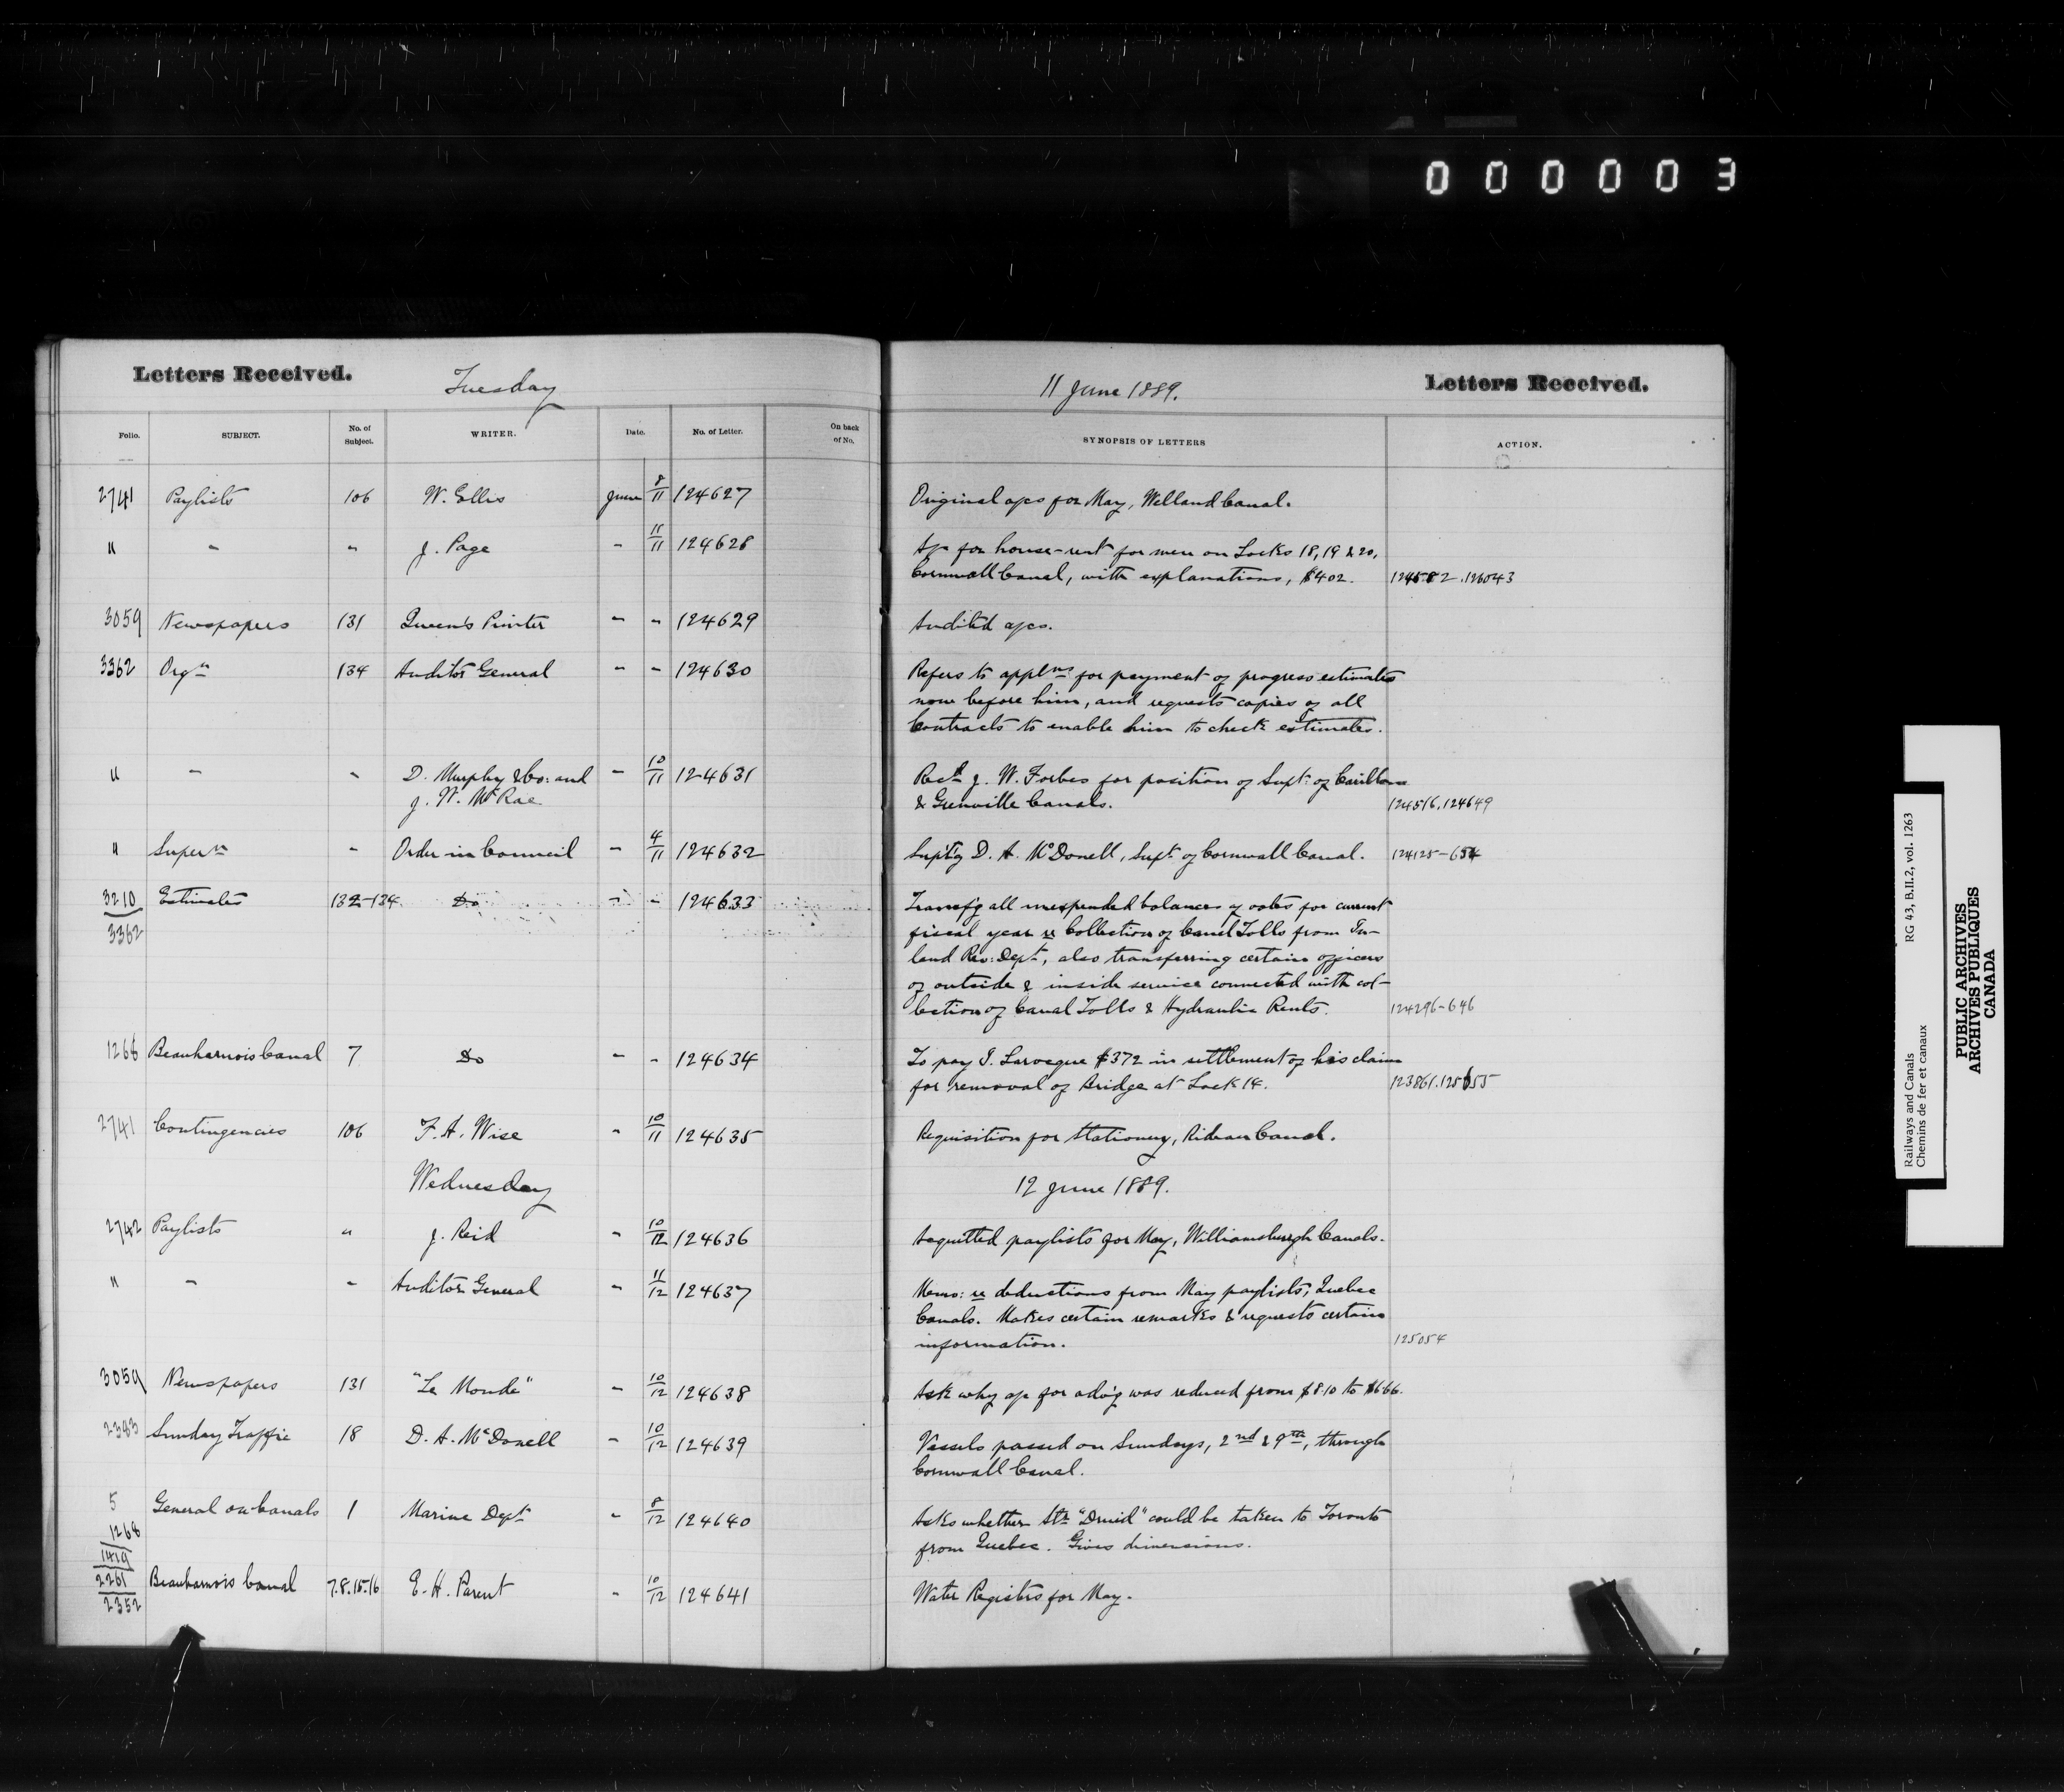 0 0 0 0 0 3
Letters Received. Tuesday 11 June 1889. Letters Received.
Folio. SUBJECT. No. of Subject. WRITER. Date. No. of Letter. On back of No. SYNOPSIS OF LETTERS ACTION.
2741 Paylists 106 W. Ellis June 8/11 124627 Original a/cs for May, Welland Canal.
" - " J. Page - 11/11 124628 A/c for house-rent for men on Locks 18, 19 & 20,
Cornwall Canal, with explanations, $402. 124582.126043
3059 Newspapers 131 Queen's Printer - - 124629 Audited a/cs.
3362 Orgn 134 Auditor General - - 124630 Refers to applns for payment of progress estimates
now before him, and requests copies of all
Contracts to enable him to check estimates.
" - - D. Murphy & Co: and - 10/11 124631 Recds J. W. Forbes for position of Supt: of Carillon
J. W. McRae & Grenville Canals. 124516.124649
" Supern - Order in Council - 4/11 124632 Supt'g D. A. McDonell, Supt of Cornwall Canal. 124125-654
3210 Estimates 132-134 Do - - 124633 Transf'g all unexpended balances of votes for current
3362 fiscal year re Collection of Canal Tolls from In-
land Rev: Dept, also transferring certain officers
of outside & inside service connected with col-
lection of Canal Tolls & Hydraulic Rents. 124296-646
1266 Beauharnois Canal 7 Do - - 124634 To pay I. Larocque $372 in settlement of his claim
for removal of Bridge at Lock 14. 123861.125655
2741 Contingencies 106 F. A. Wise - 10/11 124635 Requisition for Stationery, Rideau Canal.
Wednesday 12 June 1889.
2742 Paylists " J. Reid - 10/12 124636 Acquitted paylists for May, Williamsburgh Canals.
" - - Auditor General - 11/12 124637 Memo: re deductions from May paylists, Quebec
Canals. Makes certain remarks & requests certain
information. 125054
3059 Newspapers 131 "Le Monde" - 10/12 124638 Ask why a/c for adv'g was reduced from $8.10 to $6.66.
2383 Sunday Traffic 18 D. A. McDonell - 10/12 124639 Vessels passed on Sundays, 2nd & 9th, through
Cornwall Canal.
5 General on Canals 1 Marine Dept - 8/12 124640 Asks whether Str "Druid" could be taken to Toronto
from Quebec. Gives dimensions.
1268
1419
2261 Beauharnois Canal 7.8.15.16 E. H. Parent - 10/12 124641 Water Registers for May.
2352
Railways and Canals RG 43, B.II.2, vol. 1263
Chemins de fer et canaux
PUBLIC ARCHIVES
ARCHIVES PUBLIQUES
CANADA